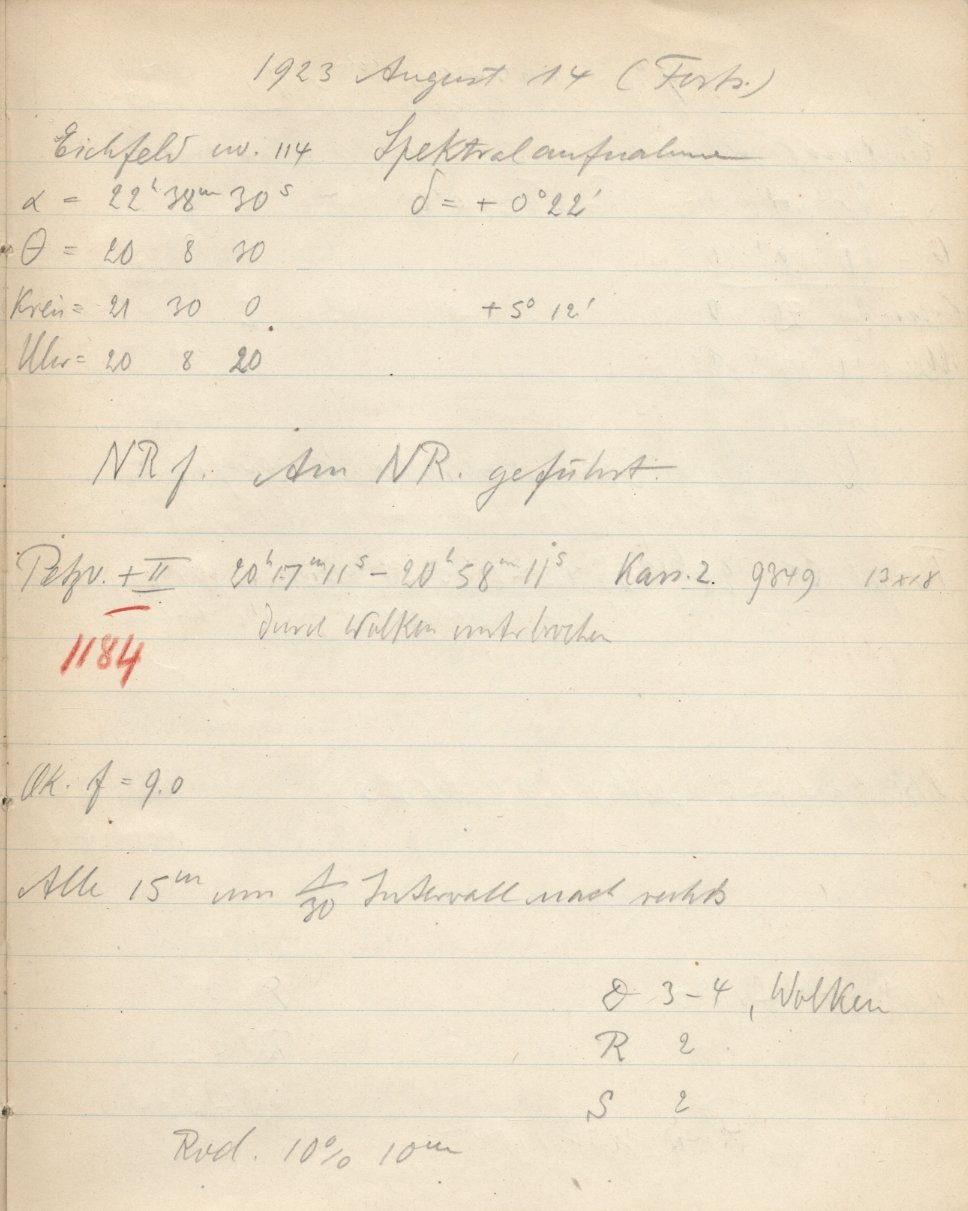 1923 August 14 (Forts.)
Eichfeld nr. 114 Spektralaufnahmen
α = 22ʰ 38ᵐ 30ˢ δ = + 0° 22'
θ = 20 8 30
Kreis = 21 30 0 + 5° 12'
Uhr = 20 8 20
NR f. Am NR. geführt.
Petzv. + II 20ʰ 17ᵐ 11ˢ – 20ʰ 58ᵐ 11ˢ Kass. 2. 9349 13x18
durch Wolken unterbrochen
1184
Ok. f = 9.0
Alle 15ᵐ um 1/30 Intervall nach rechts
D 3–4, Wolken
R 2
S 2
Rod. 10% 10ᵐ